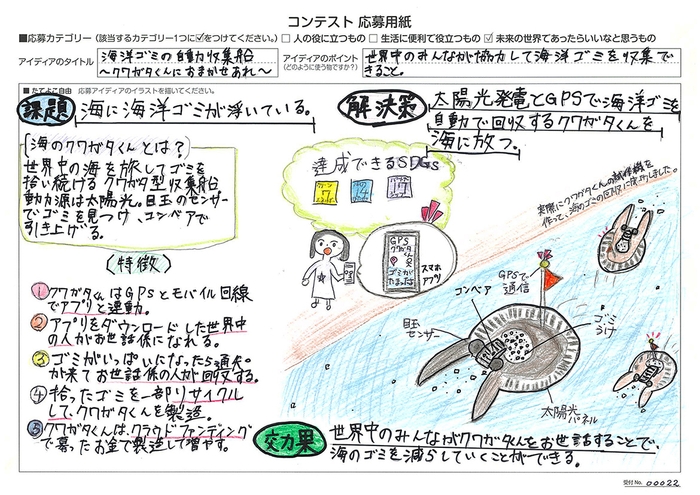 コンテスト 応募用紙
■応募カテゴリー (該当するカテゴリー1つに☑をつけてください。) □ 人の役に立つもの □ 生活に便利で役立つもの ☑ 未来の世界であったらいいなと思うもの
アイディアのタイトル
海洋ゴミの自動収集船
～クワガタくんにおまかせあれ～
アイディアのポイント
(どのように使う物ですか?)
世界中のみんなが協力して海洋ゴミを収集で
きること。
■たてよこ自由 応募アイディアのイラストを描いてください。
課題
海に海洋ゴミが浮いている。
解決策
太陽光発電とGPSで海洋ゴミを
自動で回収するクワガタくんを
海に放つ。
[海のクワガタくんとは?]
世界中の海を旅してゴミを
拾い続けるクワガタ型収集船
動力源は太陽光。目玉のセンサー
でゴミを見つけ、コンベアで
引き上げる。
達成できるSDGs
7
14
17
(特徴)
① クワガタくんはGPSとモバイル回線
でアプリと連動。
② アプリをダウンロードした世界中
の人がお世話係になれる。
③ ゴミがいっぱいになったら通知
が来てお世話係の人が回収する。
④ 拾ったゴミを一部リサイクル
して、クワガタくんを製造。
⑤ クワガタくんは、クラウドファンディング
で募ったお金で製造して増やす。
GPS
クワガタ
くん
ゴミが
たまったよ
スマホ
アプリ
実際にクワガタくんの試作機を
作って、海のゴミの回収に成功しました。
GPSで
通信
コンベア
目玉
センサー
ゴミ
うけ
太陽光
パネル
効果
世界中のみんながクワガタくんをお世話することで、
海のゴミを減らしていくことができる。
受付No. 00022